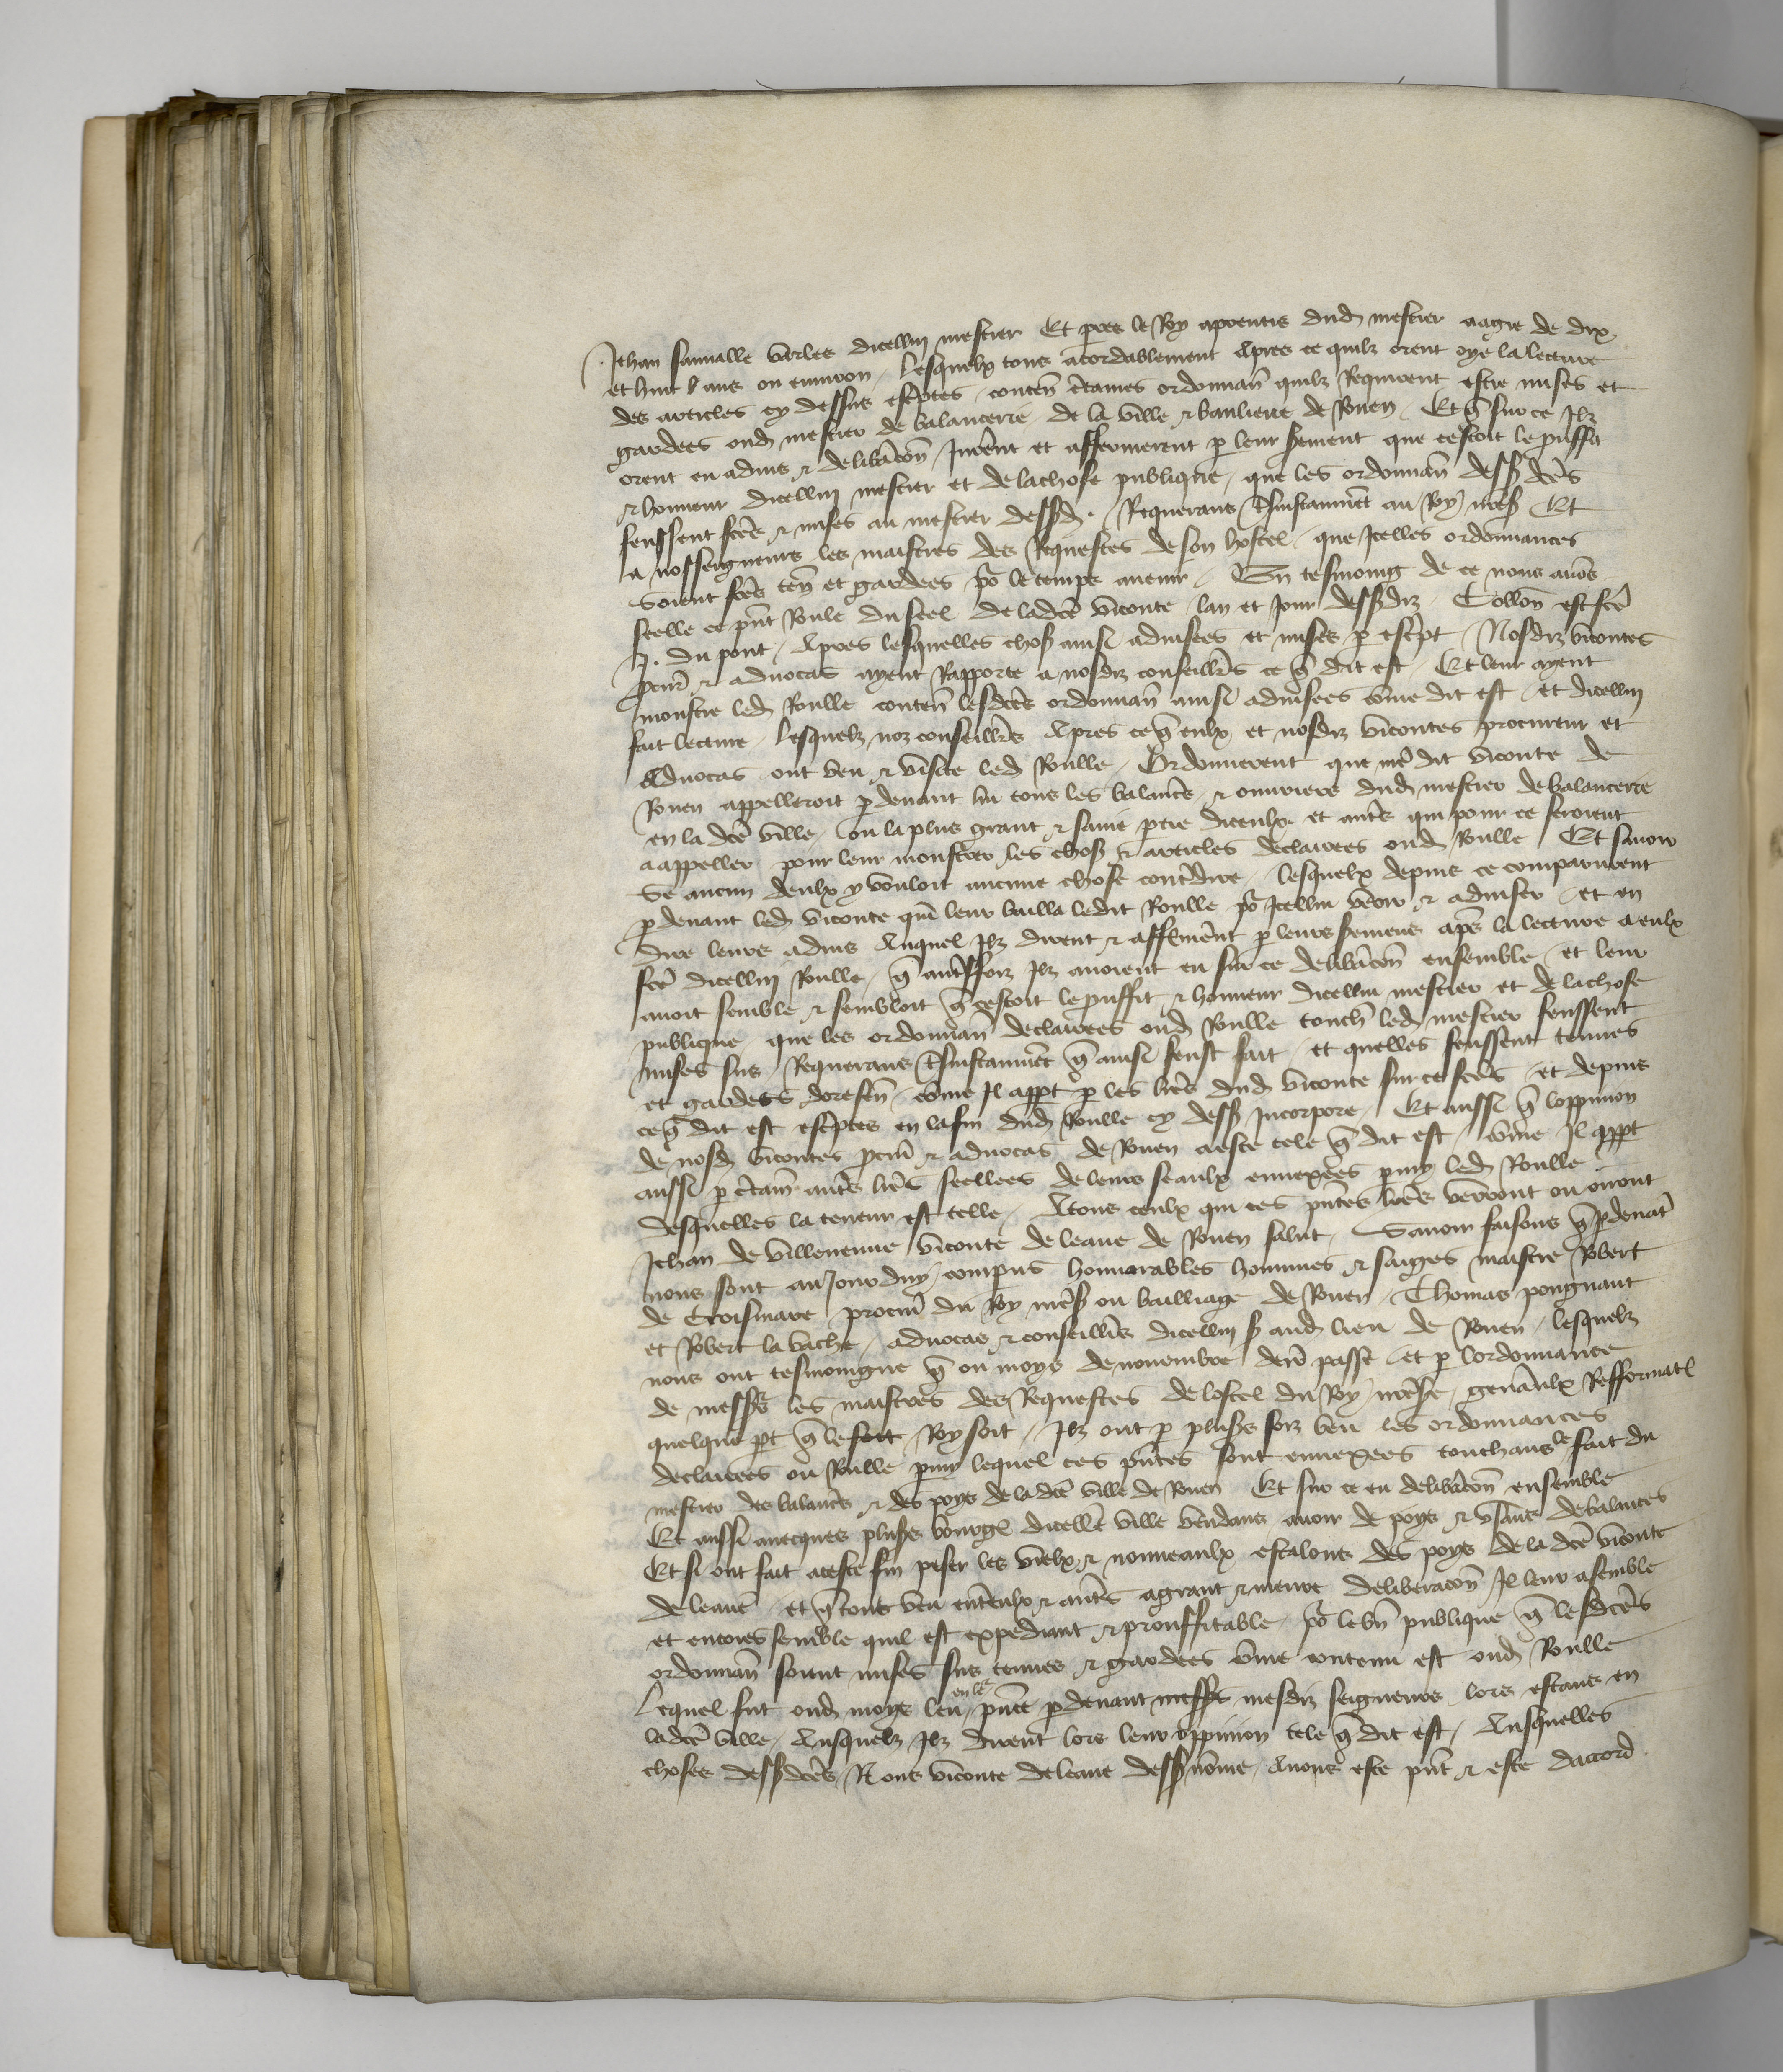 Jehan sannalle verles dicellui mestier Et pres le Roy aprentis dud mestier aagie de dix
et huit ans ou environ / lesquelx tous acordablement Apres ce quilz orent oye la lecture
des articles cy dessus escptes / conten ctaines ordonnan quilz Requirent estre mises et
gardees oud mestier de balancerie de la ville & banlieue de Rouen / Et q sur ce Jlz
orent eu advis & delibacon Jurent et affermerent p leur serment que cestoit le puffit
& honneur dicellui mestier et de la chose publique / que les ordonnan dess dces
feussent fces & mises au mestier dessd . Requerans Jnstanmet au Roy nres Et
a nosseigneurs les maistres des Requestes de son hostel que Jcelles ordonnances
soient fces ten et gardees po le temps avenir / En tesmoing de ce nous avos
seelle ce pnt Roule du seel de lad viconte lan et jour dessdiz / Collon est fce
J. du pont / Apres lesquelles chos ainsi advisees et mises p escpt / Nosdiz vicontes
pcur & advocas ayent Rapporte a nosdiz conseillrs ce q dit est / Et leur ayent
monstre led Roulle conten lesdces ordonnan ainsi advisees coe dit est / et dicellui
fait lecture / Lesquelz noz conseillrs Apres ce q eulx et nosdiz vicontes procureur et
Advocas ont veu & visite led Roulle / Ordonnerent que nre dit viconte de
Rouen appelleroit p devant lui tous les balancrs & ouvriers dud mestier de balancerie
en la dce ville / ou la plus grant & saine ptie diceulx et autrs qui pour ce seroient
a appeller pour leur monstrer les chos & articles declairees oud Roulle Et savoir
se aucun deulx y vouloit aucune chose contredire / lesquelx depuis ce comparurent
p devant led viconte qui leur bailla ledit Roulle po Jcellui veoir & adviser / et en
dire leurs advis Auquel Jlz dirent & affermerent p leurs sermens apres la lecture a eulx
fce dicellui Roulle / q autreffoiz Jlz avoient eu sur ce delibacon ensemble / et leur
avoit semble & sembloit q cestoit le puffit & honneur dicellui mestier et de la chose
publique que les ordonnan declairees oud Roulle touch led mestier feussent
mises sus / Requerans Jnstanmet q ainsi feust fait / et quelles feussent tenues
et gardees doresen / come Jl appt p les lres dud viconte sur ce fces / et depuis
ce q dit est escptes en la fin dud Roulle cy dess Jncorpore / Et aussi q loppinion
de nosd vicontes pcur & advocas de Rouen a este tele q dit est / come Jl appt
aussi p ctain autrs lres seellees de leurs seaulx annexees pmy led Roulle
desquelles la teneur est telle / A tous ceulx qui ces pntes lres verront ou orront
Jehan de villeneuve viconte de leaue de Rouen salut / Savoir faisons q p devat
nous sont aujourduy compus honnorables hommes & saiges maistre Robert
de Croismare procur du Roy nres ou bailliage de Rouen / Thomas pongnant
et Robert la vache / advocas & conseillrs dicellui s aud lieu de Rouen / lesquelz
nous ont tesmoingne q ou moys de novembre derr passe / et p lordonnance
de messrs les maistres des Requestes de lostel du Roy nresre / genaulx Refformat
quelque pt q le Roy soit / Jlz ont p pluss foiz veu les ordonnances
declairees ou Roulle pmy lequel ces pntes sont annexees touchans le fait du
mestier des balancrs & des poys de la dce ville de Rouen Et sur ce eu delibacon ensemble
Et aussi avecques pluss bourgs dicelle ville vendans avoir de poys & usans de balances
Et si ont fait a ceste fin peser les vielx & nouveaulx estalons des poys de la dce viconte
de leaue / et q tout veu entreulx & autrs a grant & meure deliberacon Jl leur a semble
et encores semble quil est expediant & prouffitable po le bn publique q lesdces
ordonnan soient mises sus tenues & gardees come contenu est oud Roulle
Lequel fut oud moys leu en le pnce p devant mesdiz seigneurs lors estans en
la dce ville / Ausquelz Jlz dirent lors leur oppinion tele q dit est / Ausquelles
choses dess dces / Nous viconte de leaue dess nome / Avons este pnt & este daccord